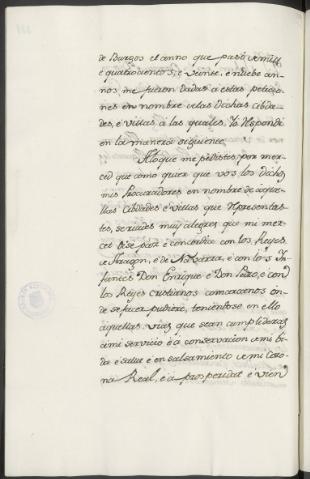 de Burgos el anno que pasó de mill
e quatrocientos, e veinte, e nuebe an-
nos me fueron dadas a estas peticio-
nes en nombre de las Dichas cibda-
des, e villas, a las quales, Yo Respondi
en la manera siguiente.
A lo que me pedistes, por mer-
ced que como quier que vos los Dichos
mis Procuradores en nombre de aque-
llas Cibdades e villas que Represent-
tes, seriades muy alegres que mi mer-
cet obiese paz e concordia con los Reyes
de Aragon, e de Navarra, e con los In-
fantes Don Enrique e Don Pedro, e con
los Reyes cristianos comarcanos on-
de se facer pudiere, teniendose en ello
aquellas vias que sean cumplideras
a mi servicio e a conservacion de mi bi-
da e salut e ensalsamiento de mi Coro-
na Real, e a prosperidat e vien